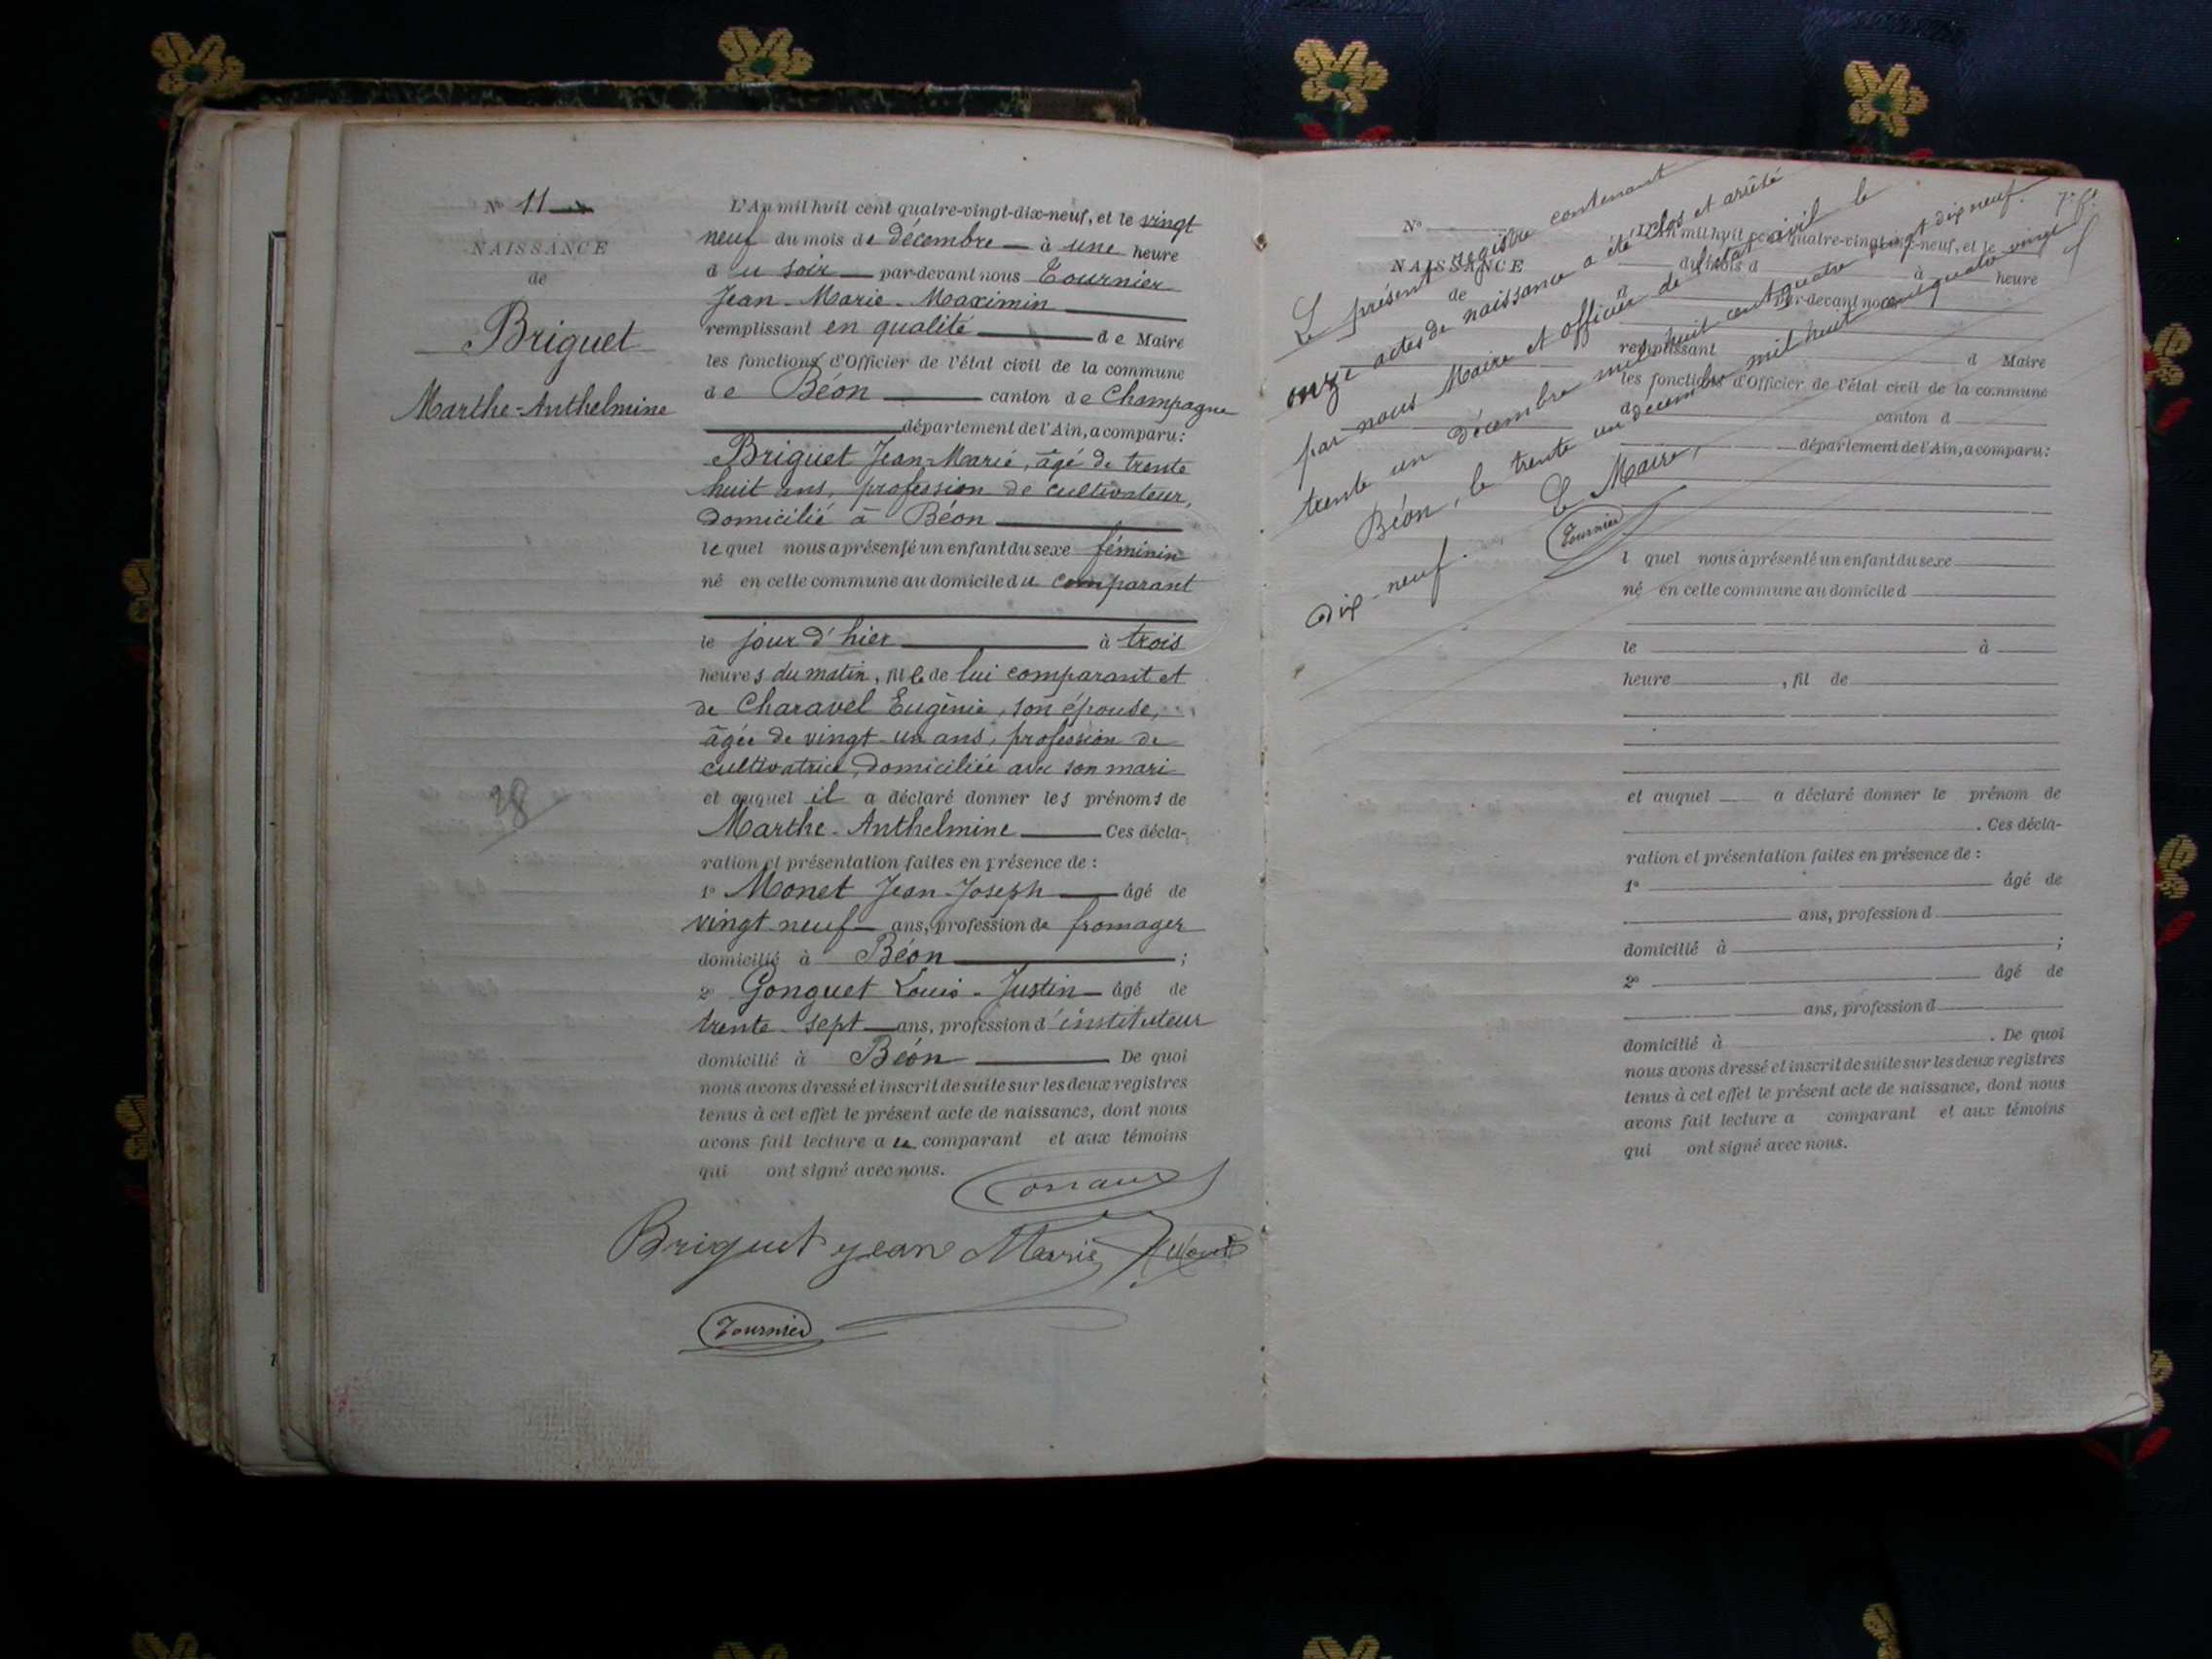 N° 11
NAISSANCE
de
Briguet
Marthe-Anthelmine
38
L'An mil huit cent quatre-vingt-dix-neuf, et le vingt
neuf du mois de décembre à une heure
du soir par-devant nous Tournier
Jean-Marie-Maximin
remplissant en qualité de Maire
les fonctions d'Officier de l'état civil de la commune
de Béon canton de Champagne
département de l'Ain, a comparu:
Briguet Jean-Marie, âgé de trente
huit ans, profession de cultivateur,
domicilié à Béon
lequel nous a présenté un enfant du sexe féminin
né en cette commune au domicile du comparant
le jour d'hier à trois
heures du matin, fille de lui comparant et
de Charavel Eugénie, son épouse,
âgée de vingt-un ans, profession de
cultivatrice, domiciliée avec son mari
et auquel il a déclaré donner les prénoms de
Marthe-Anthelmine Ces décla-
ration et présentation faites en présence de :
1° Monet Jean-Joseph âgé de
vingt-neuf ans, profession de fromager
domicilié à Béon ;
2° Gonguet Louis-Justin âgé de
trente-sept ans, profession d'instituteur
domicilié à Béon De quoi
nous avons dressé et inscrit de suite sur les deux registres
tenus à cet effet le présent acte de naissance, dont nous
avons fait lecture au comparant et aux témoins
qui ont signé avec nous.
Briguet jean Marie
Tournier
Le présent registre contenant
onze actes de naissance a été clos et arrêté
par nous Maire et officier de l'état civil le
trente un décembre mil huit cent quatre vingt dix neuf.
Béon, le trente un décembre mil huit cent quatre vingt
dix-neuf.
Le Maire,
Tournier
N°
NAISSANCE
de
L'An mil huit cent quatre-vingt-dix-neuf, et le
du mois d à heure
d par-devant nous
remplissant d Maire
les fonctions d'Officier de l'état civil de la commune
d canton d
département de l'Ain, a comparu:
l quel nous a présenté un enfant du sexe
né en cette commune au domicile d
le à
heure , fil de
et auquel a déclaré donner le prénom de
. Ces décla-
ration et présentation faites en présence de :
1° âgé de
ans, profession d
domicilié à ;
2° âgé de
ans, profession d
domicilié à . De quoi
nous avons dressé et inscrit de suite sur les deux registres
tenus à cet effet le présent acte de naissance, dont nous
avons fait lecture a comparant et aux témoins
qui ont signé avec nous.